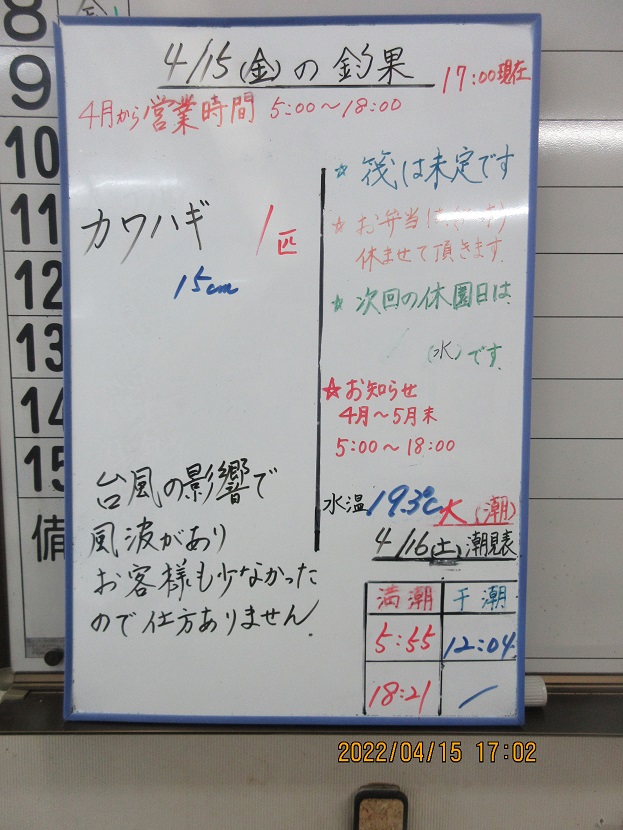 8
9
10
11
12
13
14
15
備
4/15(金)の釣果
17:00現在
4月から営業時間 5:00〜18:00
カワハギ 1匹
15cm
台風の影響で
風波があり
お客様も少なかった
ので仕方ありません.
☆ 筏は未定です
★ お弁当は
休ませて頂きます.
★ 次回の休園日は
(水)です.
☆お知らせ
4月〜5月末
5:00〜18:00
水温 19.3℃ 大(潮)
4/16(土)潮見表
満潮 干潮
5:55 12:04
18:21 /
2022/04/15 17:02